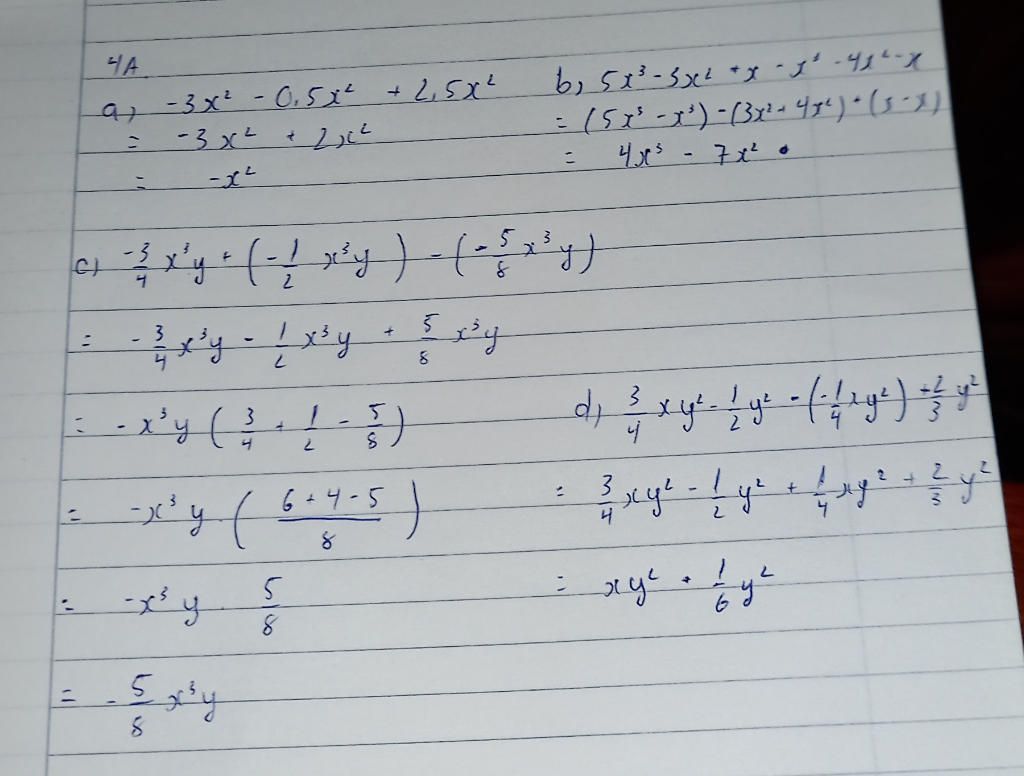 4A
a) -3x² - 0,5x² + 2,5x²
= -3x² + 2x²
= -x²
b) 5x³ - 3x² + x - x³ - 4x² - x
= (5x³ - x³) - (3x² + 4x²) + (x - x)
= 4x³ - 7x² .
c) -3/4 x³y + (-1/2 x³y) - (-5/8 x³y)
= -3/4 x³y - 1/2 x³y + 5/8 x³y
= -x³y (3/4 + 1/2 - 5/8)
= -x³y ((6 + 4 - 5)/8)
= -x³y . 5/8
= -5/8 x³y
d) 3/4 xy² - 1/2 y² - (-1/4 xy²) + 2/3 y²
= 3/4 xy² - 1/2 y² + 1/4 xy² + 2/3 y²
= xy² + 1/6 y²